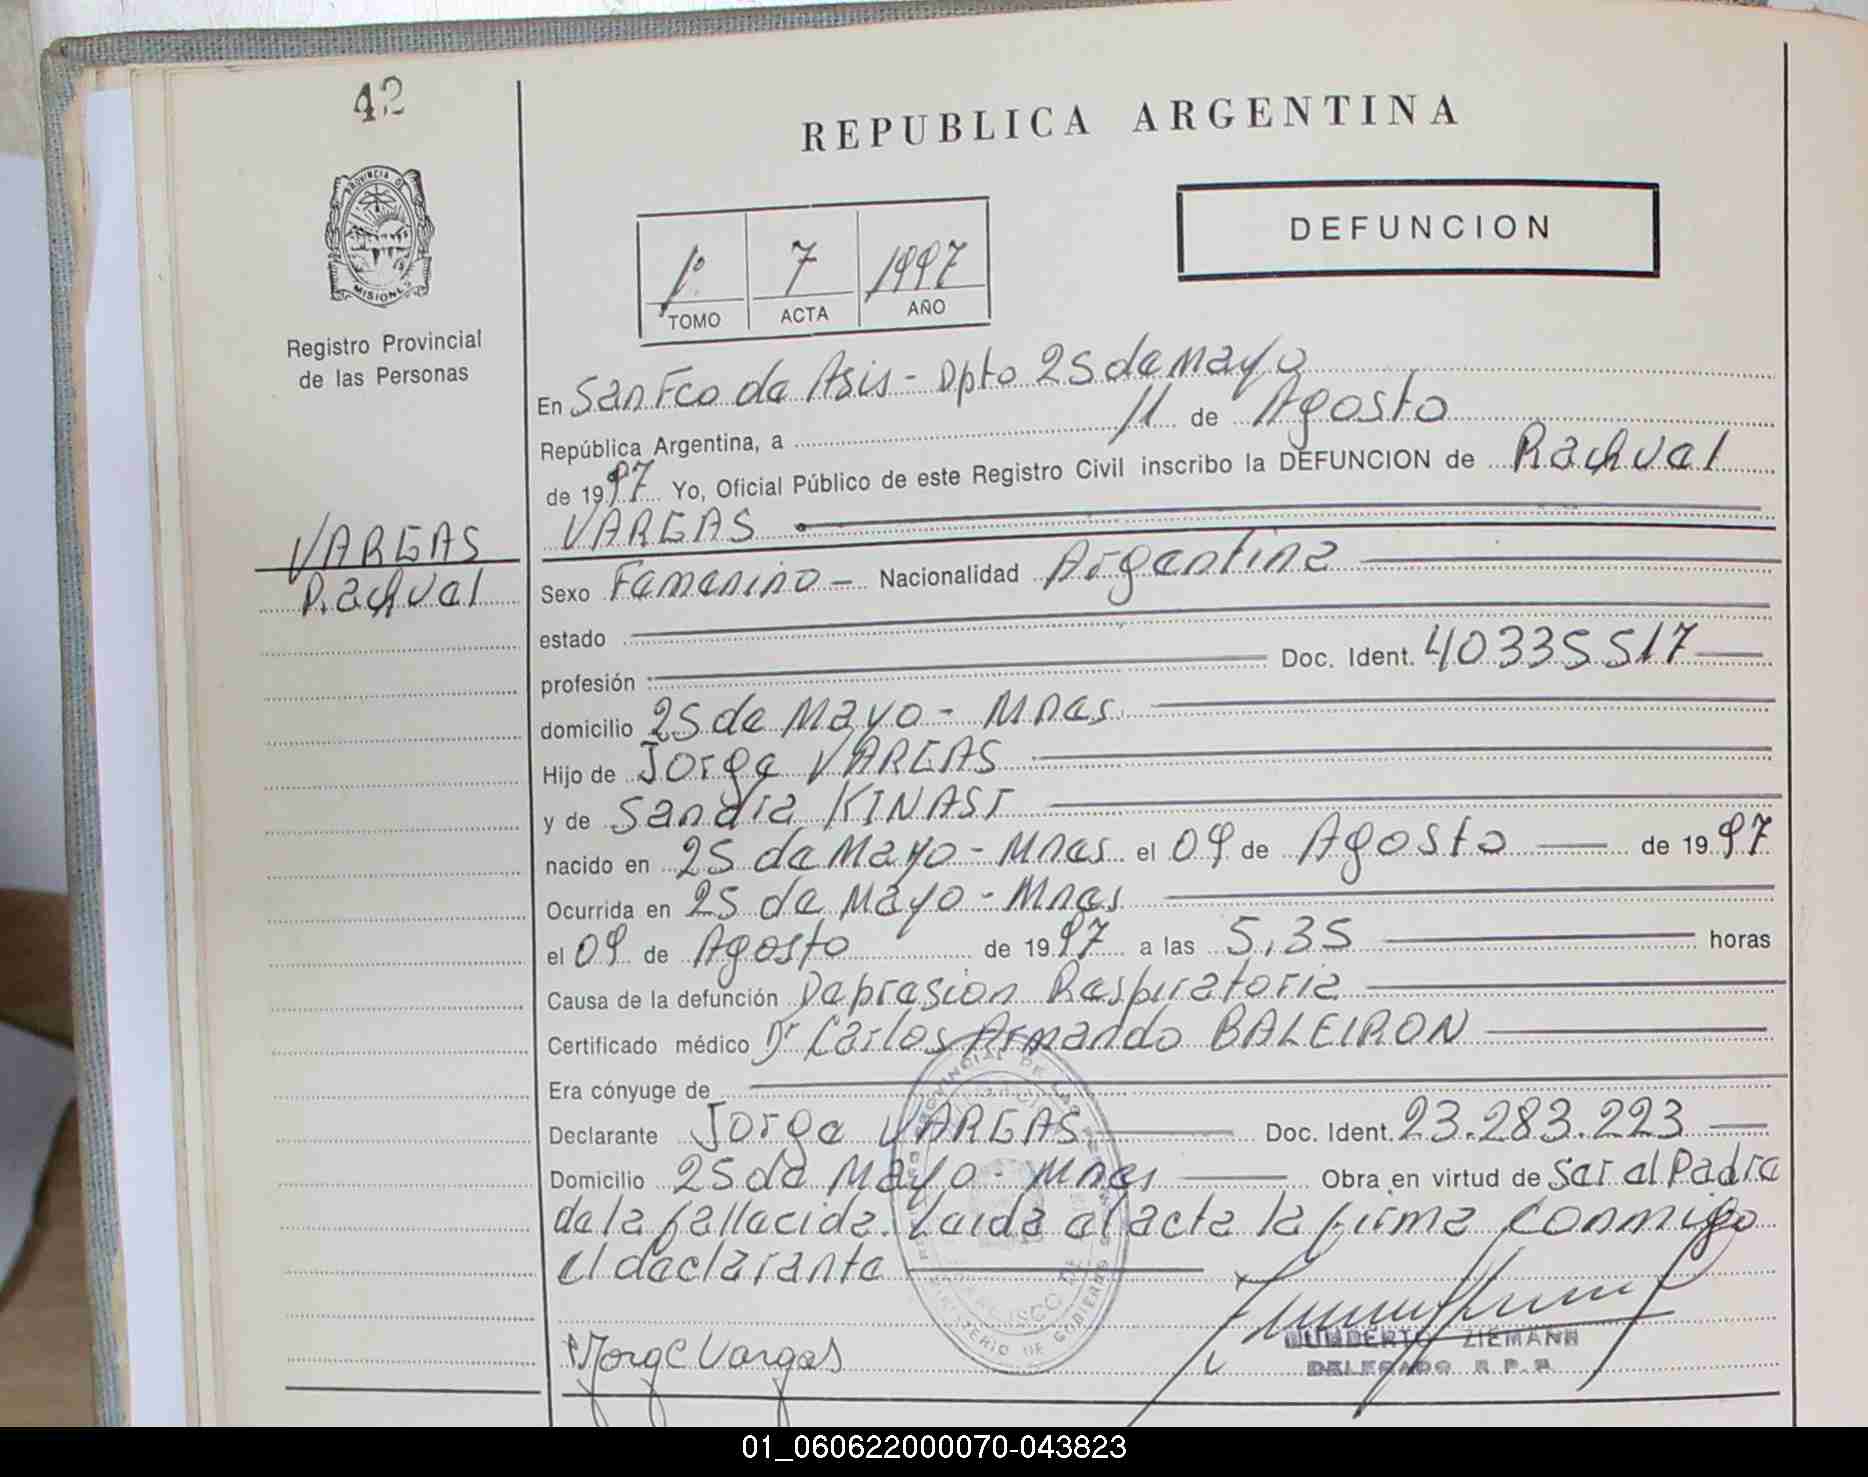 42
PROVINCIA DE
MISIONES
Registro Provincial
de las Personas
VARGAS
Rachual
REPUBLICA ARGENTINA
DEFUNCION
1º 7 1997
TOMO ACTA AÑO
En San Fco de Asis - Dpto 25 de Mayo
República Argentina, a 11 de Agosto
de 1997 Yo, Oficial Público de este Registro Civil inscribo la DEFUNCION de Rachual
VARGAS
Sexo Femenino - Nacionalidad Argentina
estado
profesión Doc. Ident. 40335517
domicilio 25 de Mayo - Mnes
Hijo de Jorge VARGAS
y de Sandra KINAST
nacido en 25 de Mayo - Mnes el 09 de Agosto de 1997
Ocurrida en 25 de Mayo - Mnes
el 09 de Agosto de 1997 a las 5,35 horas
Causa de la defunción Depresion Respiratoria
Certificado médico Dr Carlos Armando BALEIRON
Era cónyuge de
Declarante Jorge VARGAS Doc. Ident. 23.283.223
Domicilio 25 de Mayo - Mnes Obra en virtud de ser el Padre
de la fallecida. Leida el acta la firma conmigo
el declarante
Jorge Vargas
HUMBERTO ZIEMANN
DELEGADO R.P.P.
01_060622000070-043823